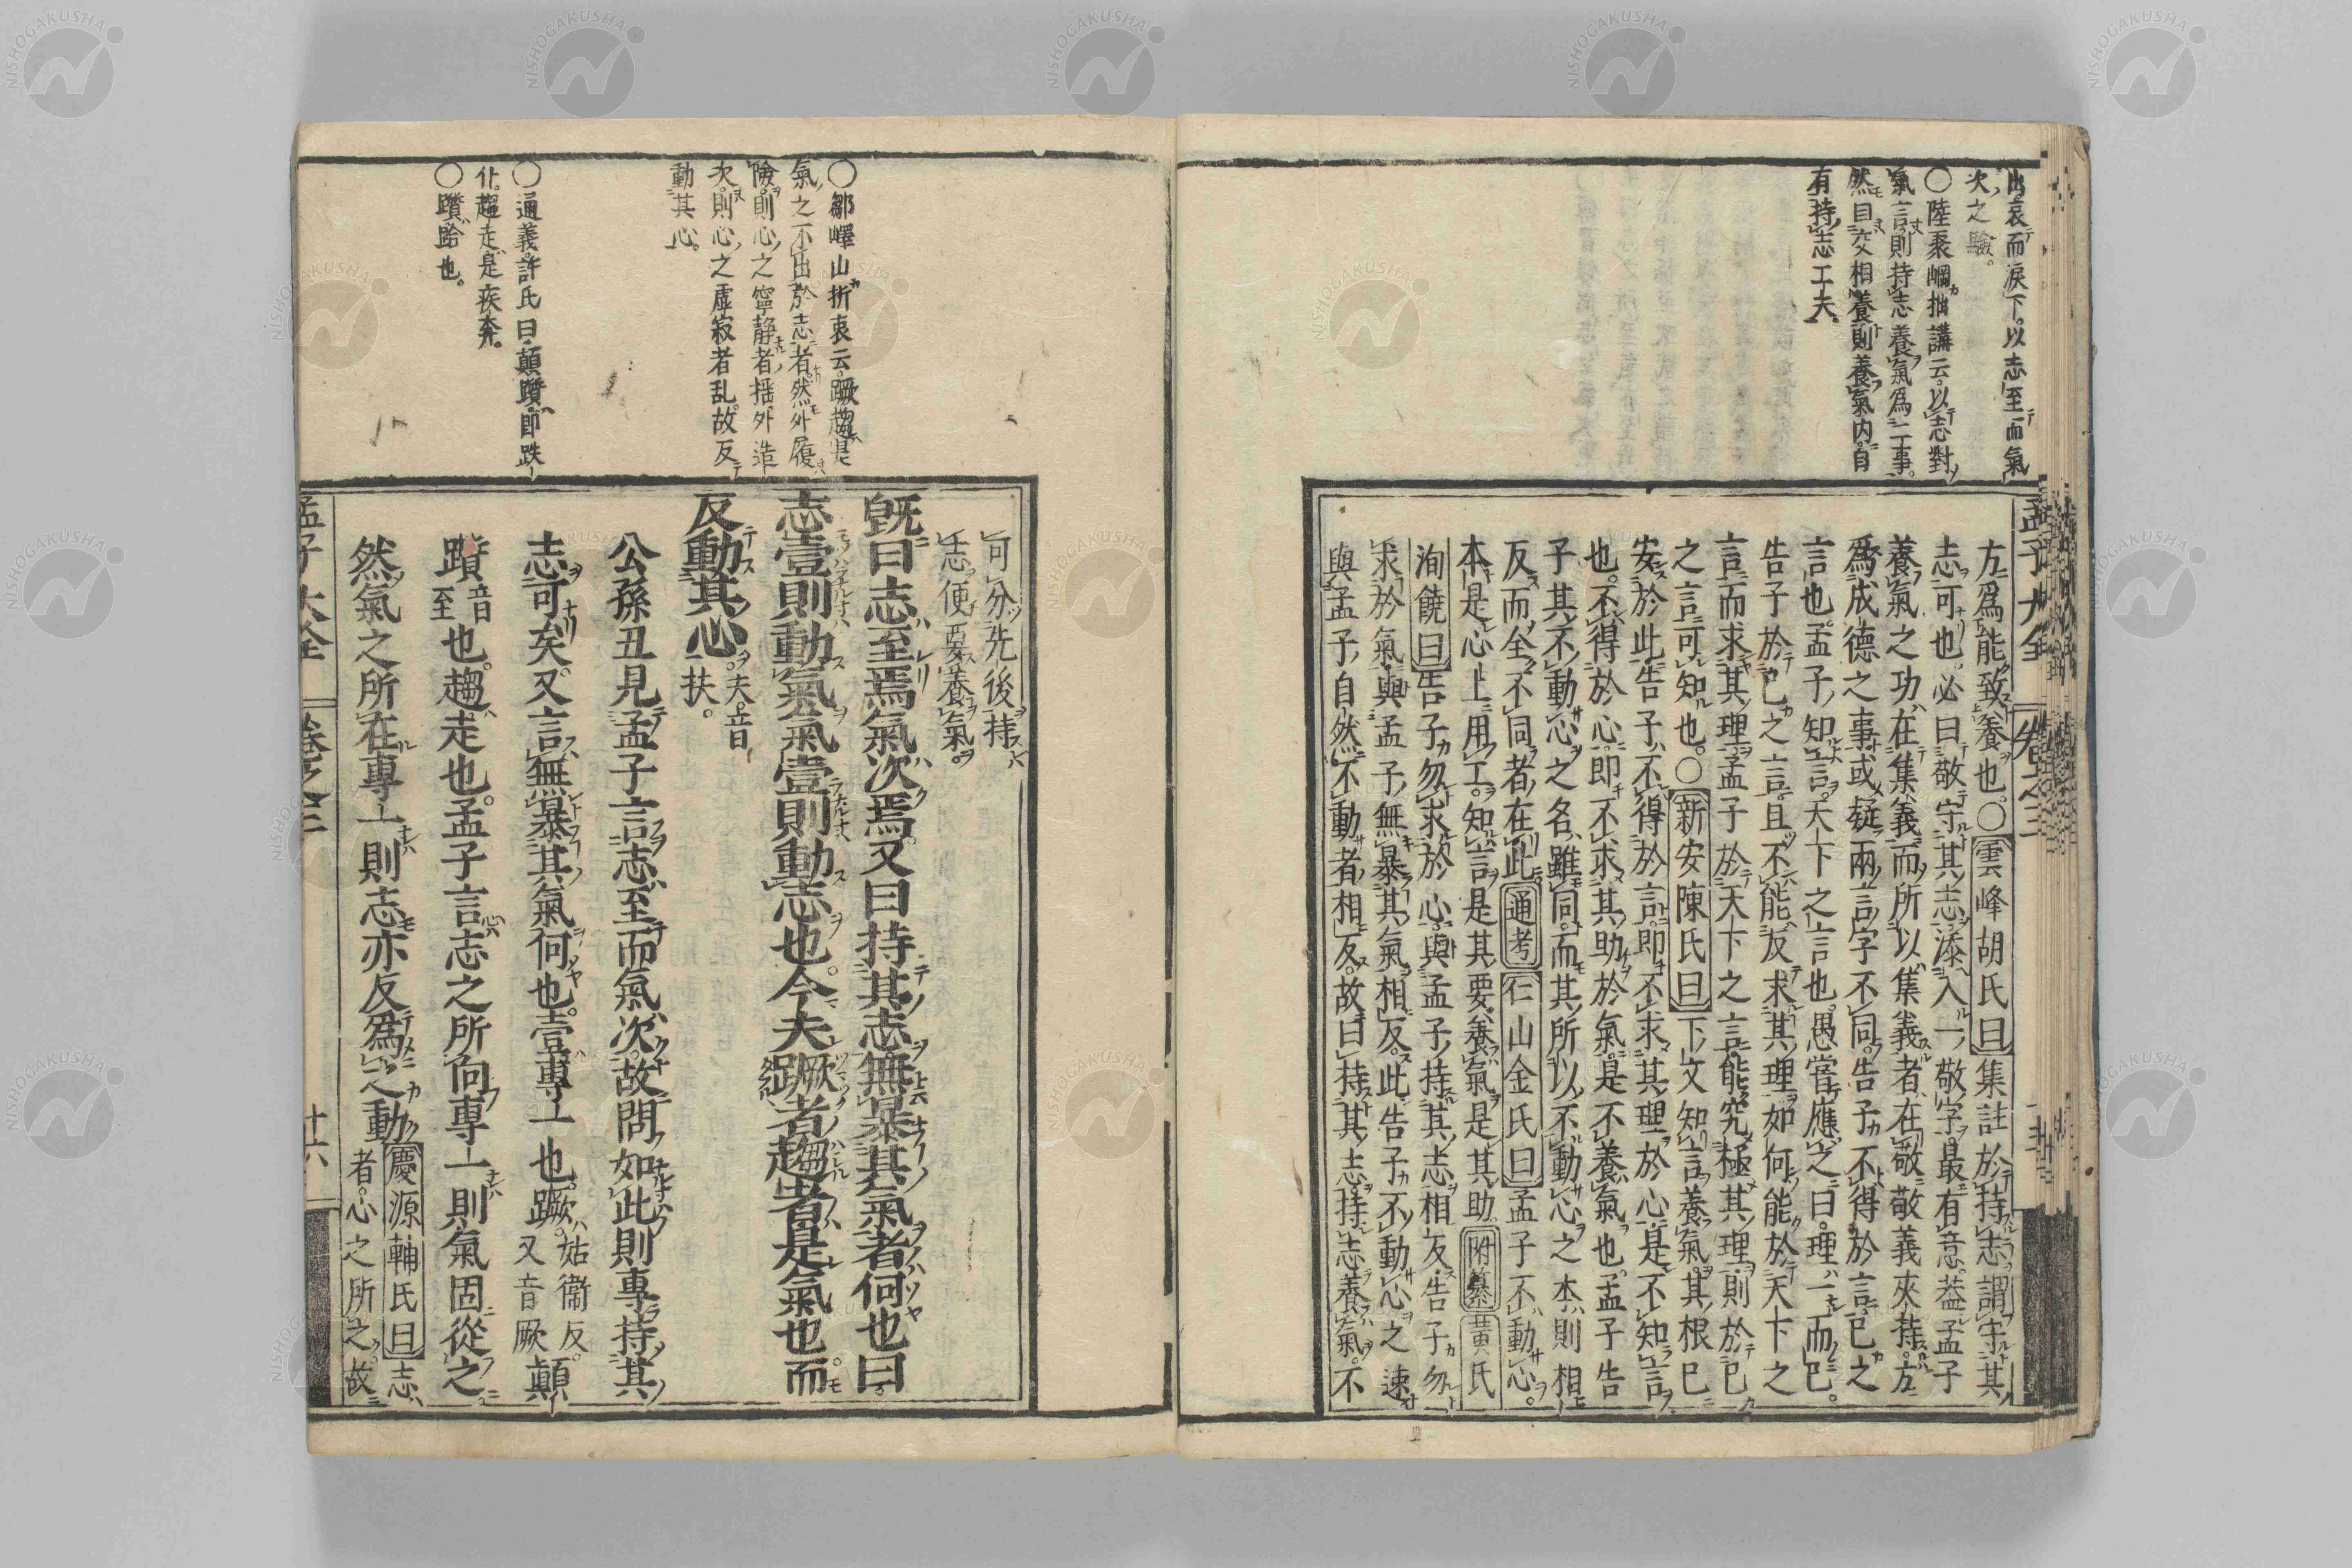 出哀而涙下。以志至而氣
次之驗。
〇陸聚岡拙講云。以志對
氣言。則持志養氣爲二事。
然自交相養則養氣内自
有持志工夫。
孟子大全 卷之三
方爲能致養也〇雲峰胡氏曰集註於持志謂守其
志可也。必曰敬守其志添入一敬字最有意葢孟子
養氣之功在集義而所以集義者在敬敬義夾持方
爲成德之事或疑兩言字不同告子不得於言己之
言也孟子知言天下之言也愚嘗應之曰理一而已。
告子於己之言且不能反求其理如何能於天下之
言而求其理孟子於天下之言能究極其理則於己
之言可知也。〇新安陳氏曰下文知言養氣其根已
安於此告子不得於言即不求其理於心是不知言
也。不得於心即不求其助於氣是不養氣也。孟子告
子其不動心之名雖同而其所以不動心之本則相
反而全不同者在此通考仁山金氏曰孟子不動心。
本是心上用工。知言是其要養氣是其助附纂黄氏
洵饒曰告子勿求於心與孟子持其志相反告子勿
求於氣與孟子無暴其氣相反此告子不動心之速
與孟子自然不動者相反故曰持其志持志養氣不
〇鄒嶧山折衷云。蹶趨是
氣之不出於志者然外履
險則心之寧静者揺外造
次則心之虚寂者乱故反
動其心。
〇通義許氏曰顛躓即跌
仆。趨走是疾奔。
〇躓跲也。
可分先後持
志便要養氣。
旣曰志至焉氣次焉又曰持其志無暴其氣者何也曰。
志壹則動氣氣壹則動志也今夫蹶者趨者是氣也而
反動其心。夫音扶。
公孫丑見孟子言志至而氣次故問如此則專持其
志可矣又言無暴其氣何也壹專一也。蹶姑衞反又音厥顛
躓音至也。趨走也。孟子言志之所向專一則氣固從之
然氣之所在專一則志亦反爲之動慶源輔氏曰志者心之所之故
孟子大全 卷之三 十六